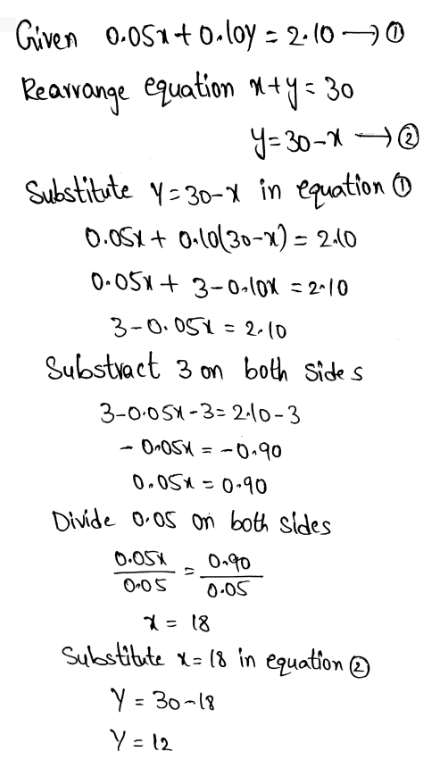 Given 0.05x + 0.10y = 2.10 → ①
Rearrange equation x+y = 30
y = 30-x → ②
Substitute y = 30-x in equation ①
0.05x + 0.10(30-x) = 2.10
0.05x + 3-0.10x = 2.10
3-0.05x = 2.10
Substract 3 on both sides
3-0.05x-3 = 2.10-3
- 0.05x = -0.90
0.05x = 0.90
Divide 0.05 on both sides
0.05x/0.05 = 0.90/0.05
x = 18
Substitute x = 18 in equation ②
y = 30-18
y = 12